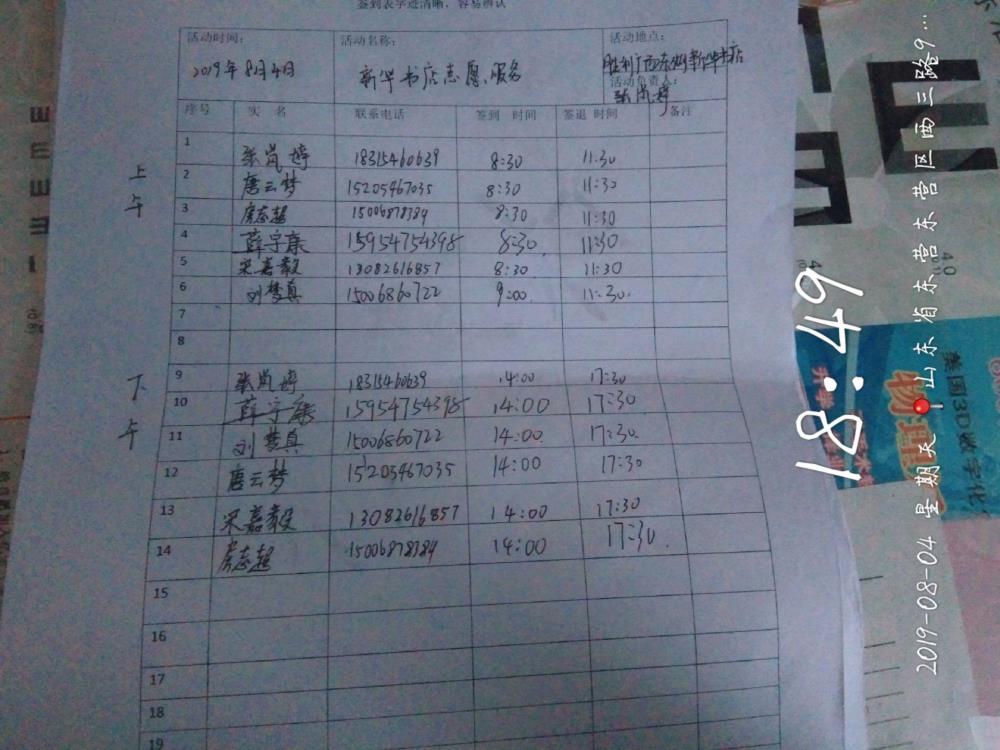 签到表字迹清晰，容易辨认
活动时间： 活动名称： 活动地点：
2019年8月4日 新华书店志愿服务 胜利广西东城新华书店
活动负责人：
张岚婷
序号 实 名 联系电话 签到 时间 签退 时间 备注
上午
1 张岚婷 18315460639 8:30 11:30
2 唐云梦 15205467035 8:30 11:30
3 房志超 15006878789 8:30 11:30
4 薛宇康 15954754398 8:30 11:30
5 宋嘉毅 13082616857 8:30 11:30
6 刘梦真 15006860722 9:00 11:30
7
8
下午
9 张岚婷 18315460639 14:00 17:30
10 薛宇康 15954754398 14:00 17:30
11 刘梦真 15006860722 14:00 17:30
12 唐云梦 15205467035 14:00 17:30
13 宋嘉毅 13082616857 14:00 17:30
14 房志超 15006878789 14:00 17:30
15
16
17
18
19
18:49
2019-08-04 星期天 山东省东营市东营区西三路9...
美国3D数字化
物理